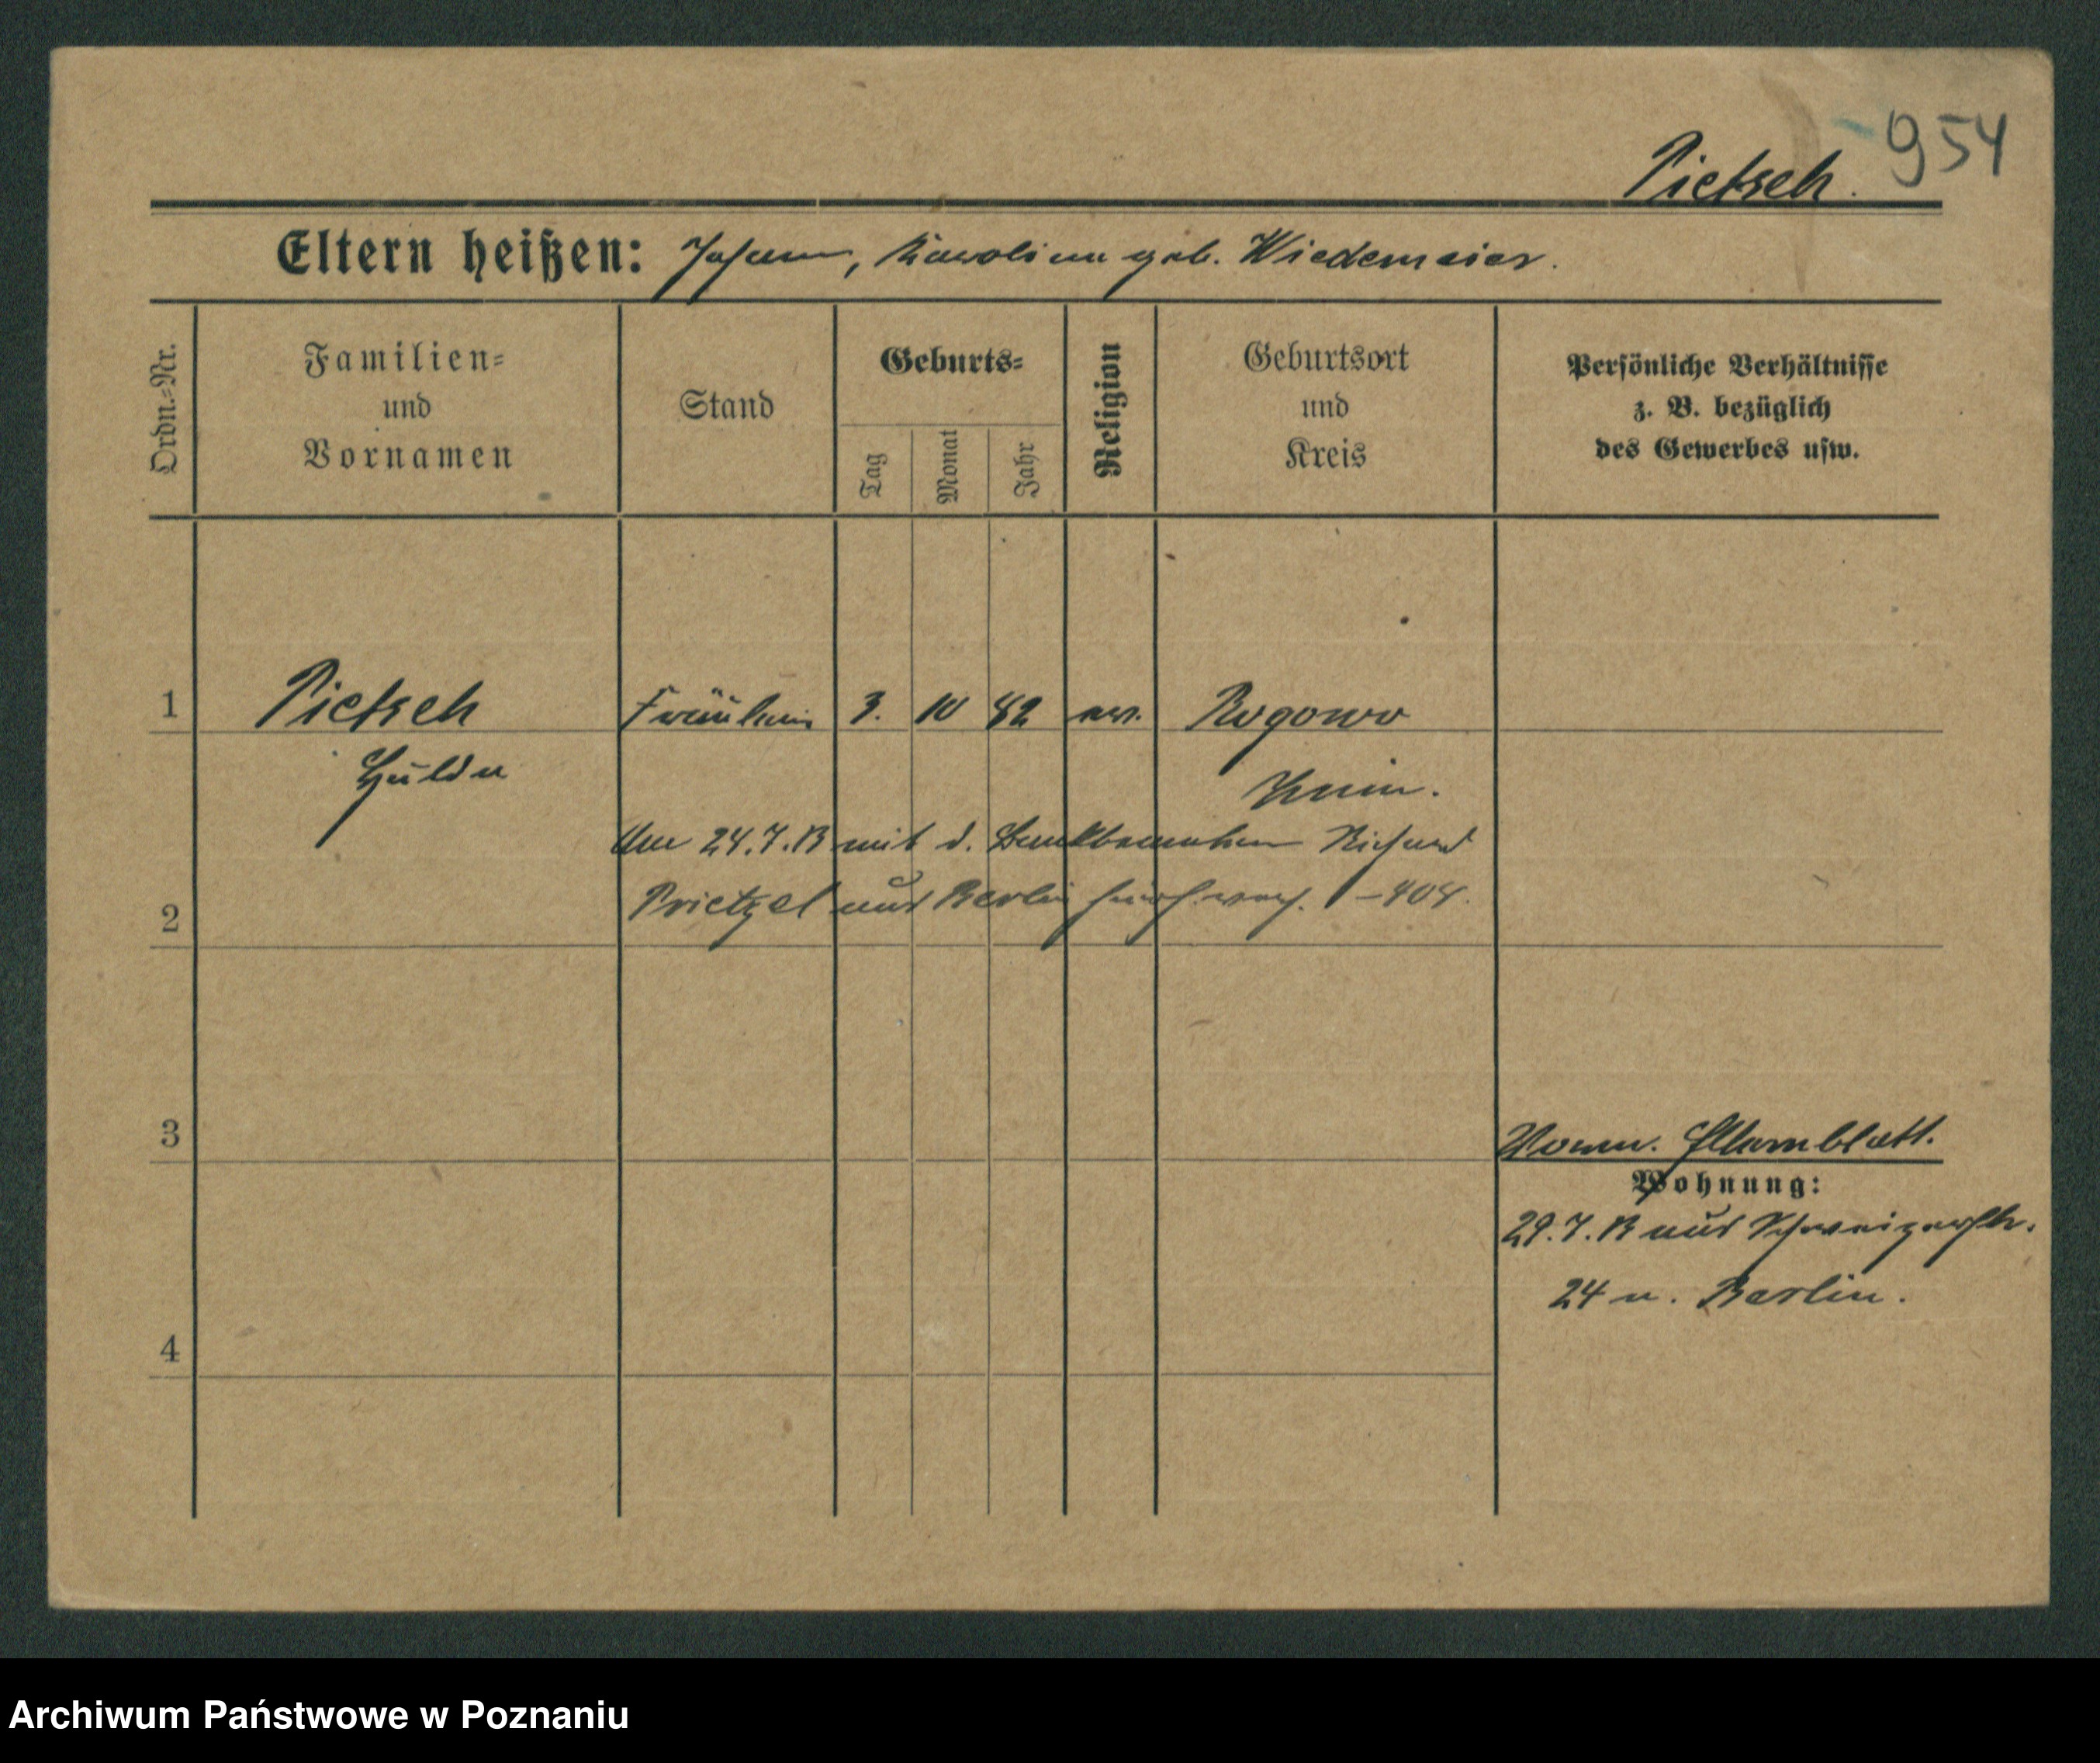 954
Pietsch.
Eltern heißen: Johann, Karoline geb. Wiedemeier.
Ordn.-Nr.
Familien-
und
Vornamen
Stand
Geburts-
Tag
Monat
Jahr
Religion
Geburtsort
und
Kreis
Persönliche Verhältnisse
z. B. bezüglich
des Gewerbes usw.
1 Pietsch Fräulein 3. 10 82 ev. Rogowo
Hulda Znin.
Am 24.7.13 mit d. Bankbeamten Richard
2 Prietzel aus Berlin
3
Elternblatt.
Wohnung:
29.7.13 aus Schweizerstr.
24 n. Berlin.
4
Archiwum Państwowe w Poznaniu